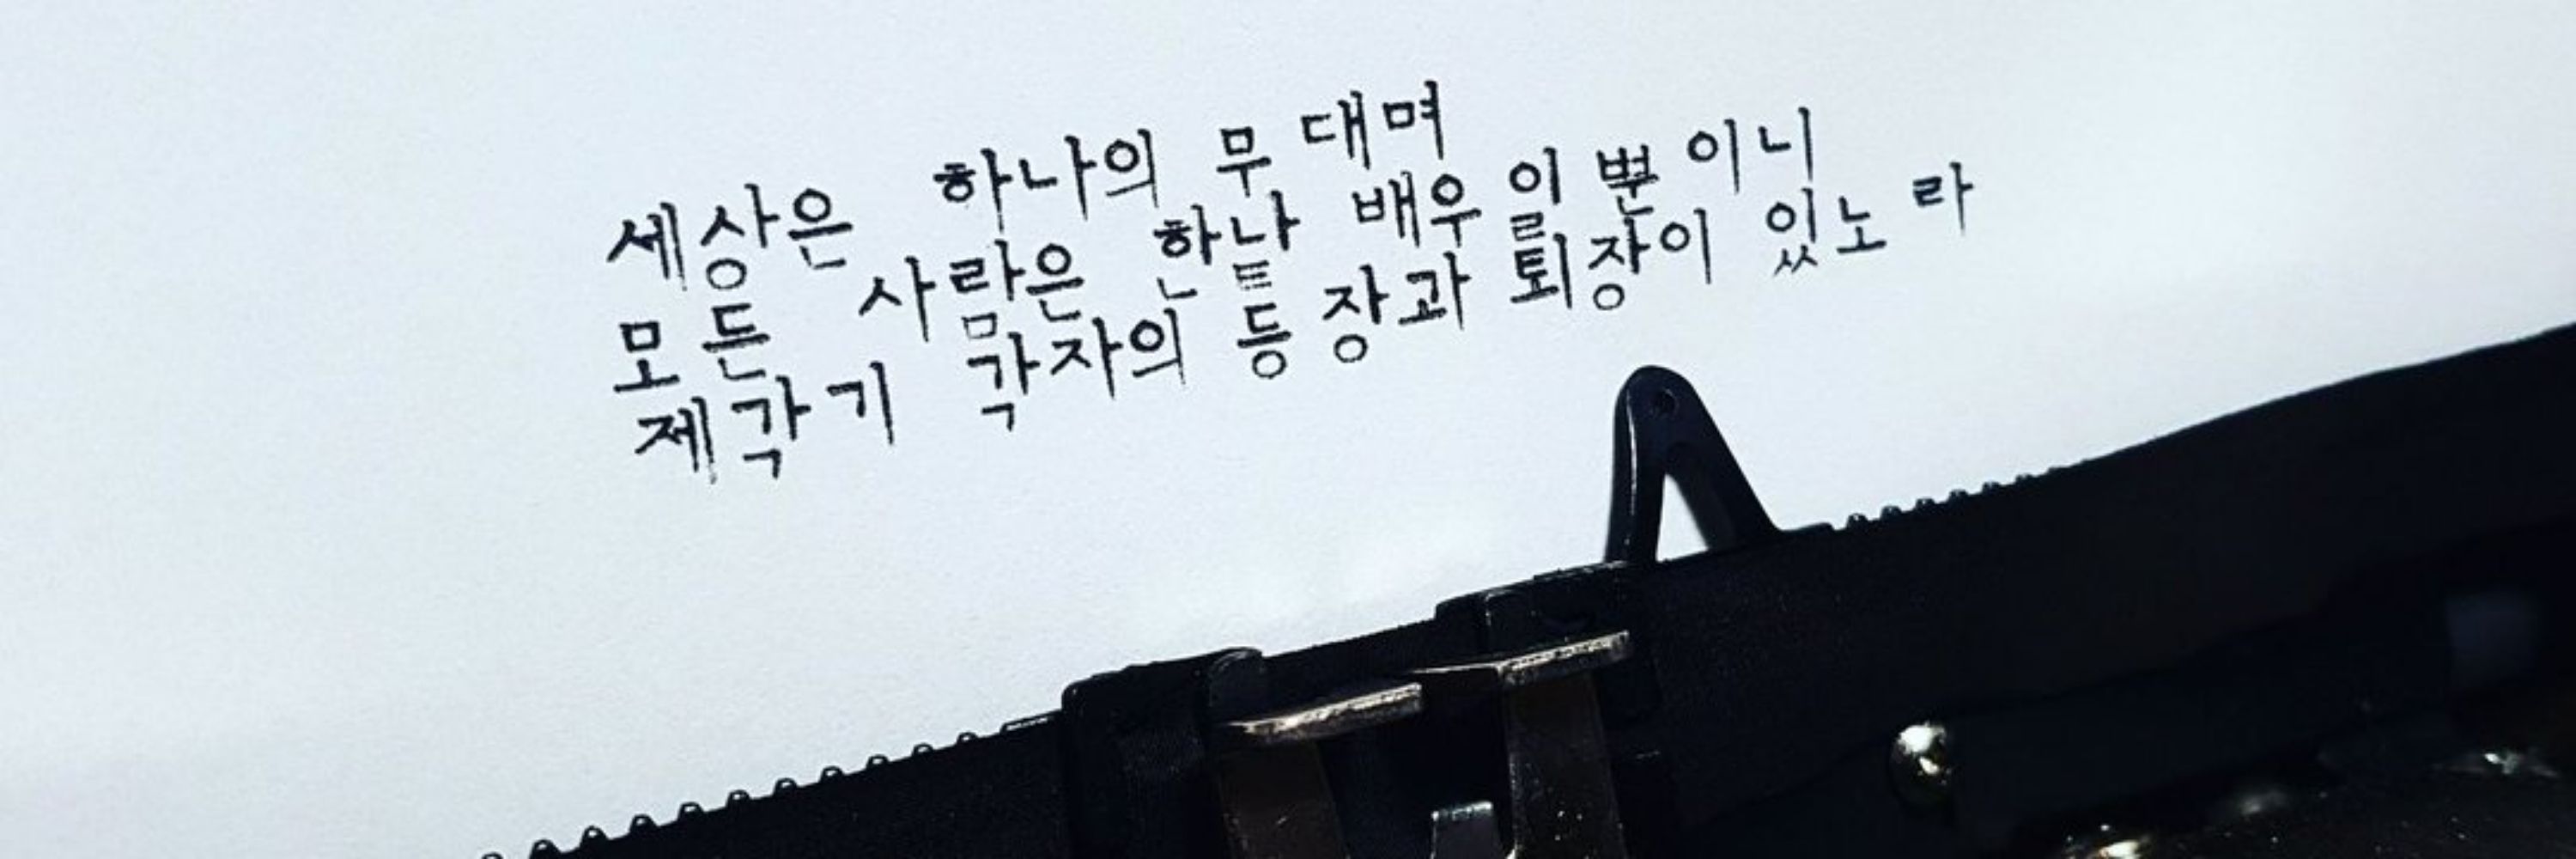 세상은 하나의 무대며
모든 사람은 한낱 배우일 뿐이니
제각기 각자의 등장과 퇴장이 있노라